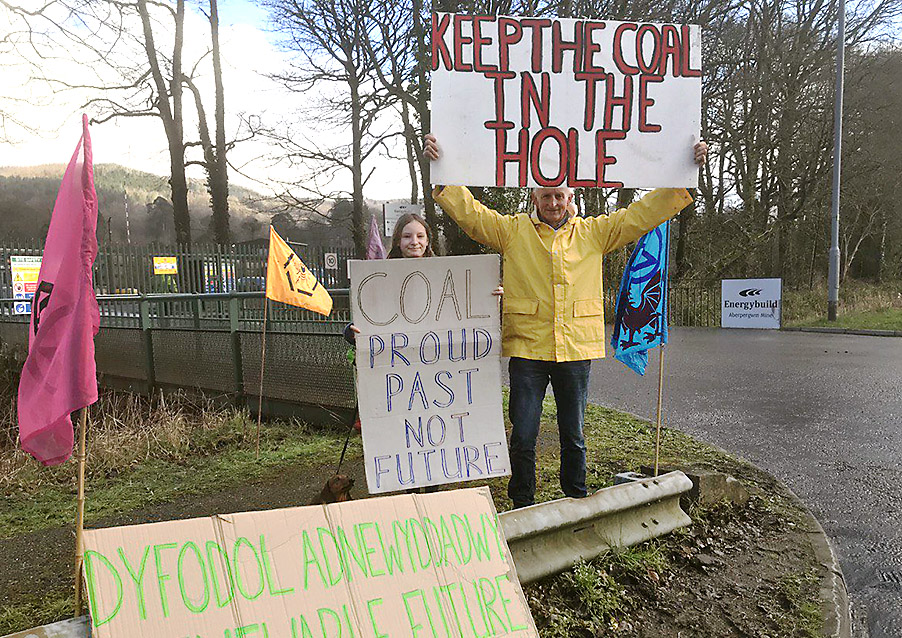 KEEP THE COAL
IN THE
HOLE
COAL
PROUD
PAST
NOT
FUTURE
DYFODOL ADNEWYDDADWY
FUTURE
Energybuild
Aberpergwm Mine
SITE SAFETY
10